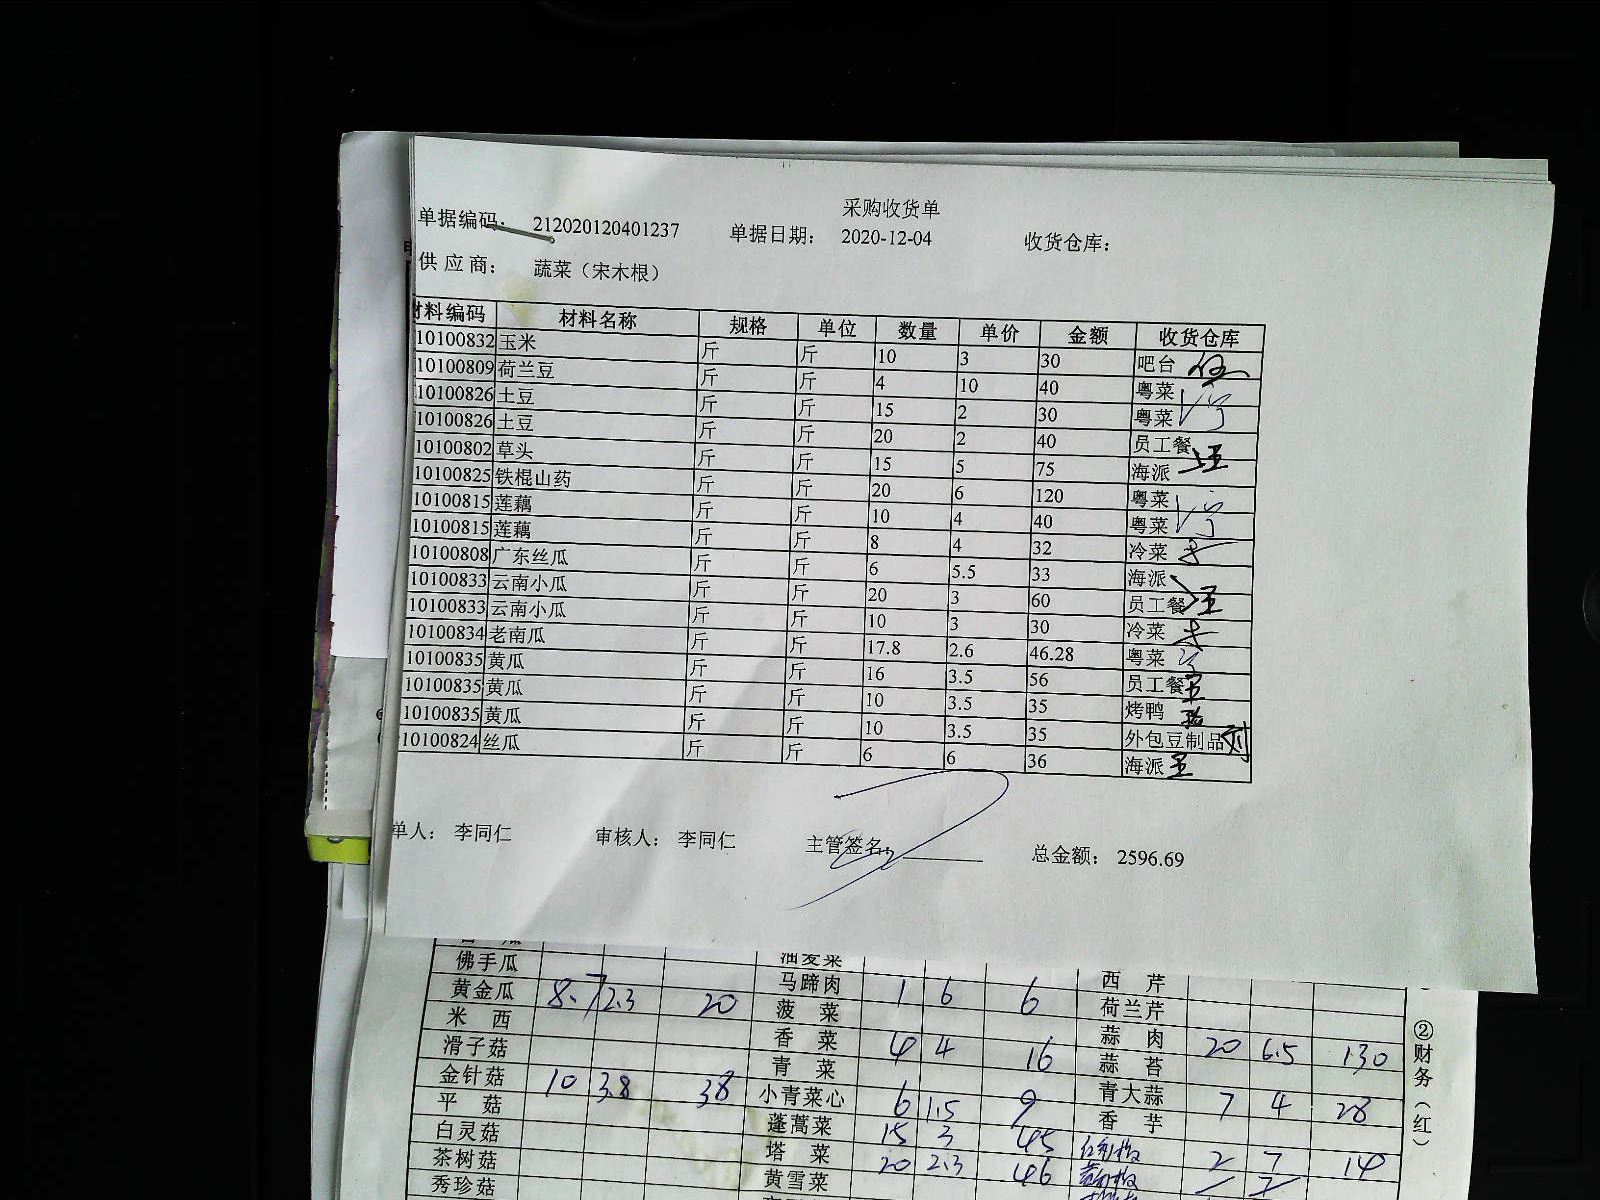 采购收货单
单据编码： 212020120401237 单据日期： 2020-12-04 收货仓库：
供应商： 蔬菜（宋木根）
材料编码 材料名称 规格 单位 数量 单价 金额 收货仓库
10100832 玉米 斤 斤 10 3 30 吧台
10100809 荷兰豆 斤 斤 4 10 40 粤菜
10100826 土豆 斤 斤 15 2 30 粤菜
10100826 土豆 斤 斤 20 2 40 员工餐
10100802 草头 斤 斤 15 5 75 海派
10100825 铁棍山药 斤 斤 20 6 120 粤菜
10100815 莲藕 斤 斤 10 4 40 粤菜
10100815 莲藕 斤 斤 8 4 32 冷菜
10100808 广东丝瓜 斤 斤 6 5.5 33 海派
10100833 云南小瓜 斤 斤 20 3 60 员工餐
10100833 云南小瓜 斤 斤 10 3 30 冷菜
10100834 老南瓜 斤 斤 17.8 2.6 46.28 粤菜
10100835 黄瓜 斤 斤 16 3.5 56 员工餐
10100835 黄瓜 斤 斤 10 3.5 35 烤鸭
10100835 黄瓜 斤 斤 10 3.5 35 外包豆制品 刘
10100824 丝瓜 斤 斤 6 6 36 海派
单人： 李同仁 审核人： 李同仁 主管签名： 总金额： 2596.69
油麦菜
佛手瓜 马蹄肉 1 6 6 西芹
黄金瓜 8.7 2.3 20 菠菜 荷兰芹
米西 香菜 4 4 16 蒜肉 20 6.5 130
滑子菇 青菜 蒜苔
金针菇 10 3.8 38 小青菜心 6 1.5 9 青大蒜 7 4 28
平菇 蓬蒿菜 15 3 45 香芋
白灵菇 塔菜 20 2.3 46 2 7 14
茶树菇 黄雪菜 7
秀珍菇
②财务（红）